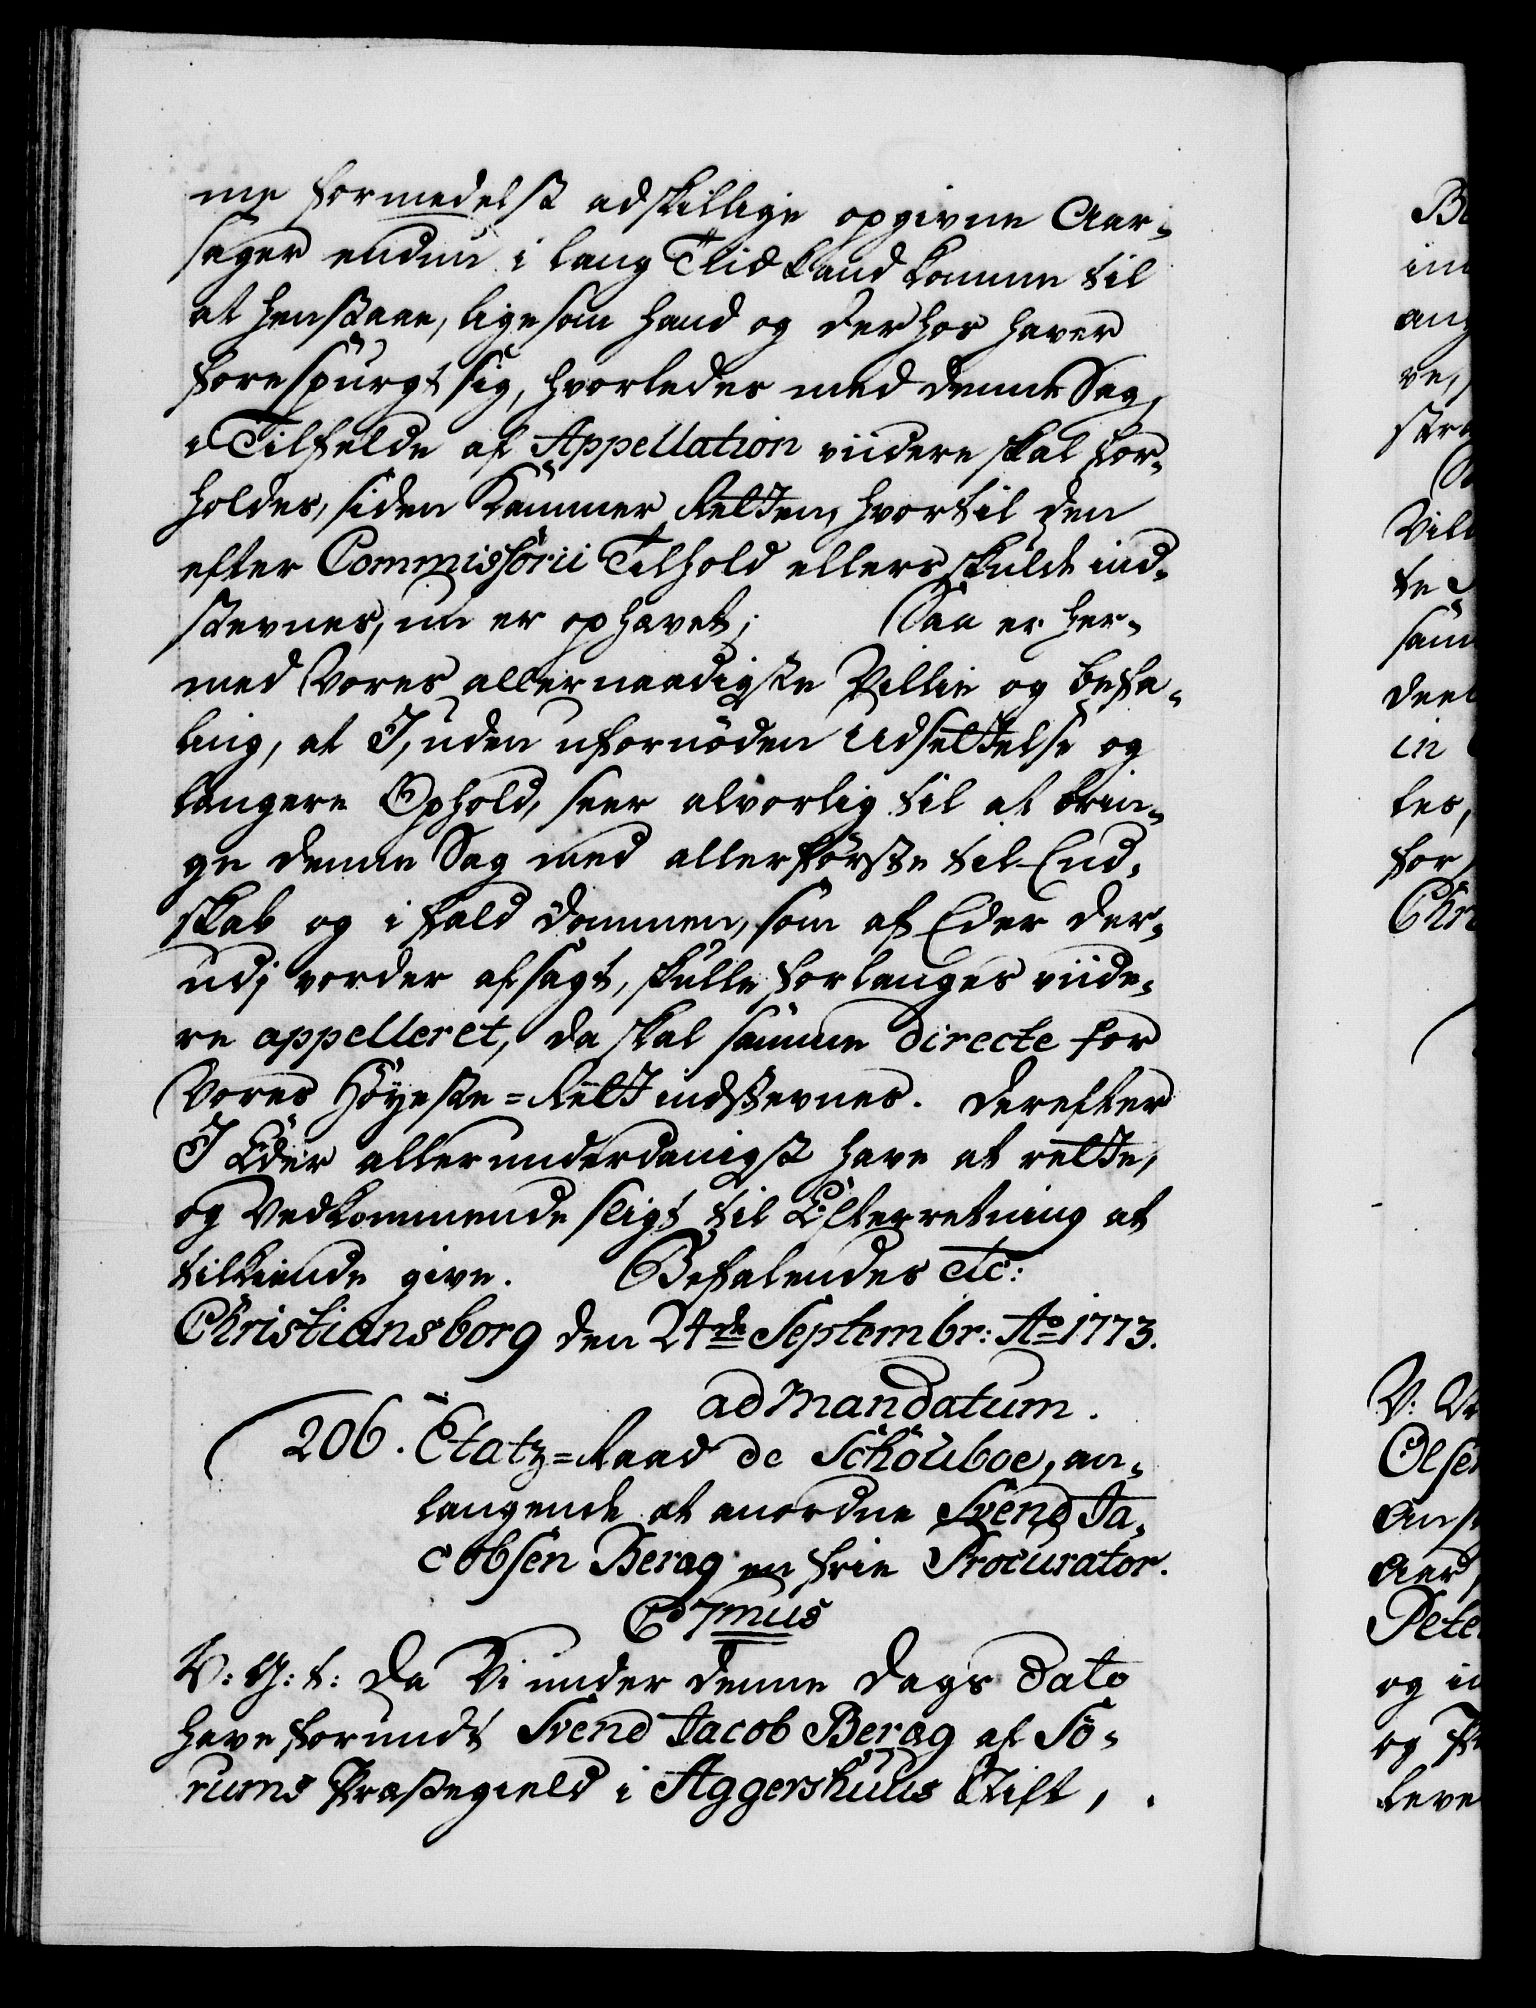 me formedelst adskillige opgivne Aar-
sager endnu i lang Tiid kand komme til
at henstaae, ligesom hand og derhos haver
forespurgt sig, hvorledes med denne Sag,
i Tilfelde af Appellation viidere skal for-
holdes, siden Kammer Retten, hvortil den
efter Commissorii Tilhold ellers skulde ind-
stevnes, nu er ophævet; Saa er her-
med Vores allernaadigste Villie og befa-
ling, at I, uden ufornöden Udsettelse og
længere Ophold, seer alvorlig til at brin-
ge denne Sag med allerförste til End-
skab og i fald Dommen, som af Eder der-
udj vorder afsagt, skulle forlanges viide-
re appelleret, da skal samme directe for
Vores Höyeste-Rett indstevnes. Derefter
I Eder allerunderdanigst have at rette,
og Vedkommende sligt til Efterretning at
tilkiende give. Befalendes etc:
Christiansborg den 24de Septembr: Ao 1773.
ad Mandatum.
206. Etatz-Raad de Schouboe, an-
langende at anordne Svend Ja-
cobsen Berag en frie Procurator.
C 7mus
V: G: t: Da Vi under denne Dags Dato
have forundt Svend Jacob Berag af Sö-
rums Præstegield i Aggershuus Stift,